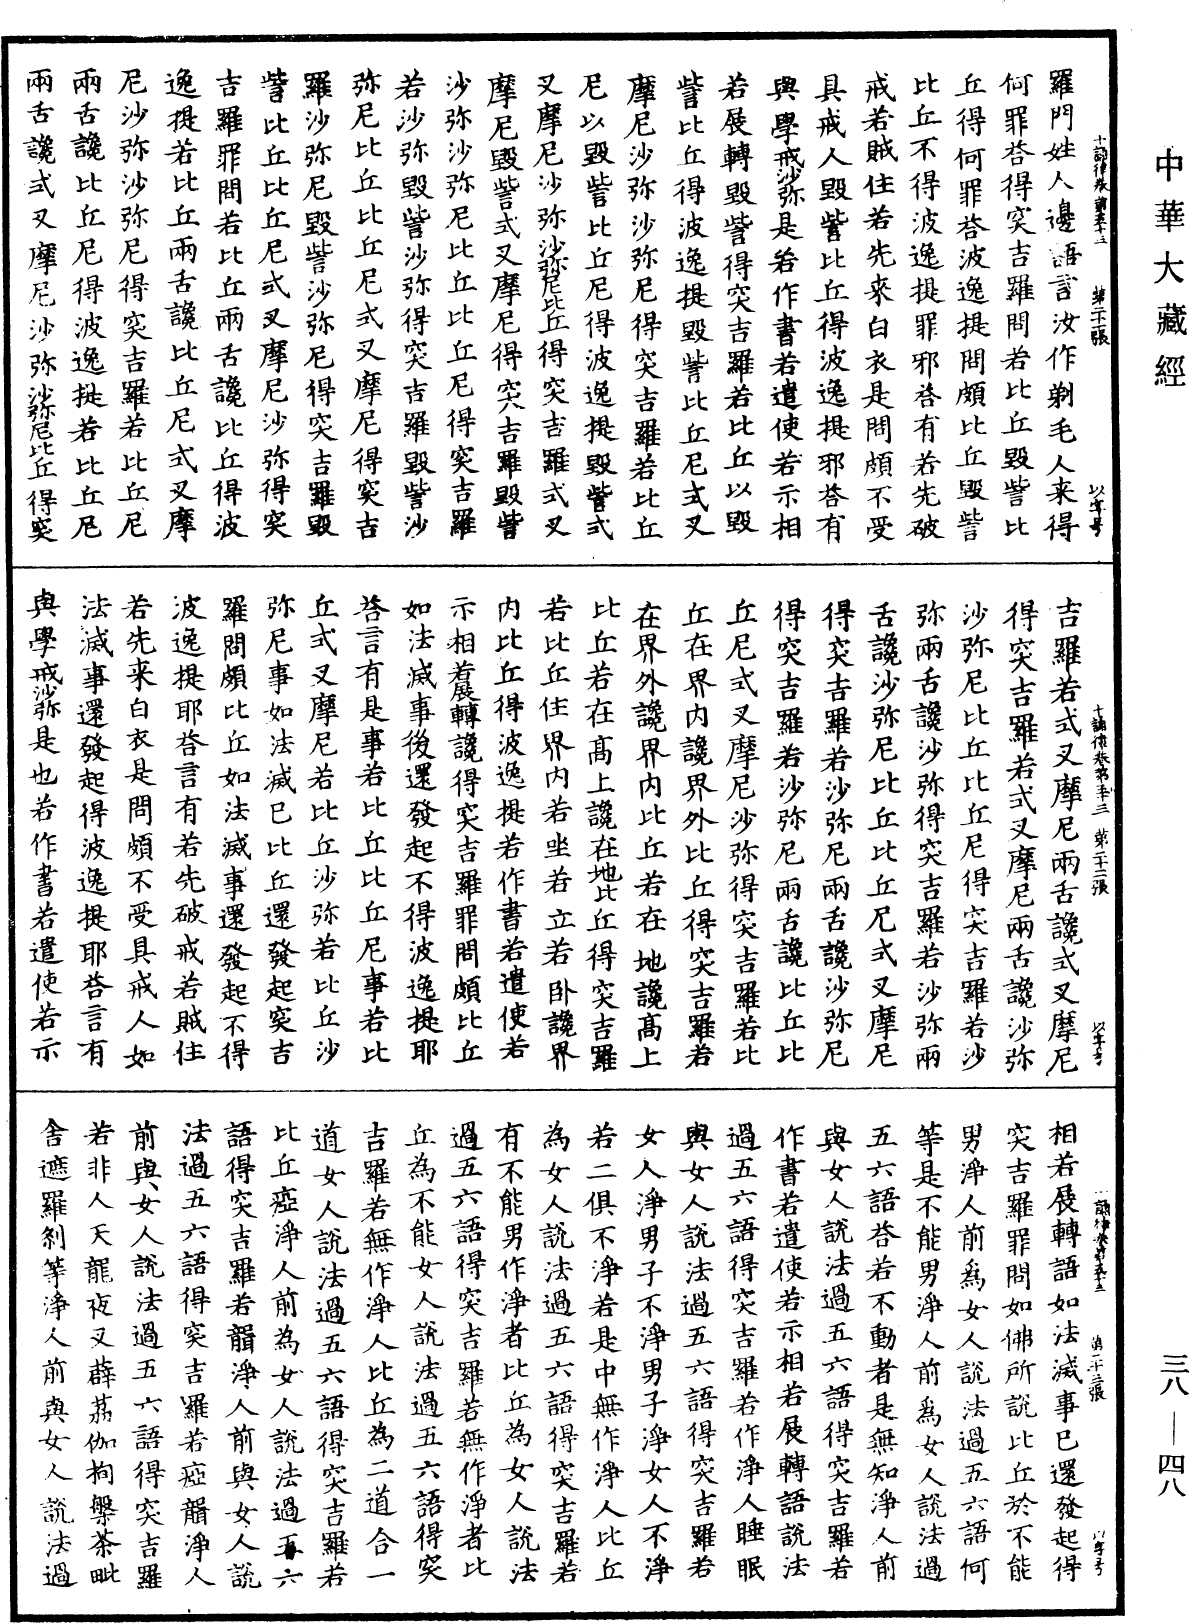 中華大藏經
十誦律卷第五十三 第二十一張 以字号
羅門姓人邊語言汝作剃毛人来得
何罪荅得突吉羅問若比丘毀訾比
丘得何罪荅波逸提問頗比丘毀訾
比丘不得波逸提罪邪荅有若先破
戒若賊住若先來白衣是問頗不受
具戒人毀訾比丘得波逸提邪荅有
與學戒沙弥是若作書若遣使若示相
若展轉毀訾得突吉羅若比丘以毀
訾比丘得波逸提毀訾比丘尼式叉
摩尼沙弥沙弥尼得突吉羅若比丘
尼以毀訾比丘尼得波逸提毀訾式
叉摩尼沙弥沙弥尼比丘得突吉羅式叉
摩尼毀訾式叉摩尼得突吉羅毀訾
沙弥沙弥尼比丘比丘尼得突吉羅
若沙弥毀訾沙弥得突吉羅毀訾沙
弥尼比丘比丘尼式叉摩尼得突吉
羅沙弥尼毀訾沙弥尼得突吉羅毀
訾比丘比丘尼式叉摩尼沙弥得突
吉羅罪問若比丘兩舌讒比丘得波
逸提若比丘兩舌讒比丘尼式叉摩
尼沙弥沙弥尼得突吉羅若比丘尼
兩舌讒比丘尼得波逸提若比丘尼
兩舌讒式叉摩尼沙弥沙弥尼比丘得突
十誦律卷第五十三 第二十二張 以字号
吉羅若式叉摩尼兩舌讒式叉摩尼
得突吉羅若式叉摩尼兩舌讒沙弥
沙弥尼比丘比丘尼得突吉羅若沙
弥兩舌讒沙弥得突吉羅若沙弥兩
舌讒沙弥尼比丘比丘尼式叉摩尼
得突吉羅若沙弥尼兩舌讒沙弥尼
得突吉羅若沙弥尼兩舌讒比丘比
丘尼式叉摩尼沙弥得突吉羅若比
丘在界内讒界外比丘得突吉羅若
在界外讒界内比丘若在地讒髙上
比丘若在髙上讒在地比丘得突吉羅
若比丘住界内若坐若立若卧讒界
内比丘得波逸提若作書若遣使若
示相若展轉讒得突吉羅罪問頗比丘
如法滅事後還發起不得波逸提耶
荅言有是事若比丘比丘尼事若比
丘式叉摩尼若比丘沙弥若比丘沙
弥尼事如法滅已比丘還發起突吉
羅問頗比丘如法滅事還發起不得
波逸提耶荅言有若先破戒若賊住
若先来白衣是問頗不受具戒人如
法滅事還發起得波逸提耶荅言有
與學戒沙弥是也若作書若遣使若示
十誦律卷第五十三 第二十三張 以字号
相若展轉語如法滅事已還發起得
突吉羅罪問如佛所說比丘於不能
男淨人前爲女人說法過五六語何
等是不能男淨人前爲女人說法過
五六語荅若不動者是無知淨人前
與女人說法過五六語得突吉羅若
作書若遣使若示相若展轉語說法
過五六語得突吉羅若作淨人睡眠
與女人說法過五六語得突吉羅若
女人淨男子不淨男子淨女人不淨
若二俱不淨若是中無作淨人比丘
為女人說法過五六語得突吉羅若
有不能男作淨者比丘為女人說法
過五六語得突吉羅若無作淨者比
丘為不能女人說法過五六語得突
吉羅若無作淨人比丘為二道合一
道女人說法過五六語得突吉羅若
比丘瘂淨人前為女人說法過五六
語得突吉羅若聾淨人前與女人說
法過五六語得突吉羅若瘂聾淨人
前與女人說法過五六語得突吉羅
若非人天龍夜叉薜荔伽拘槃茶毗
舍遮羅剎等淨人前與女人說法過
三八—四八